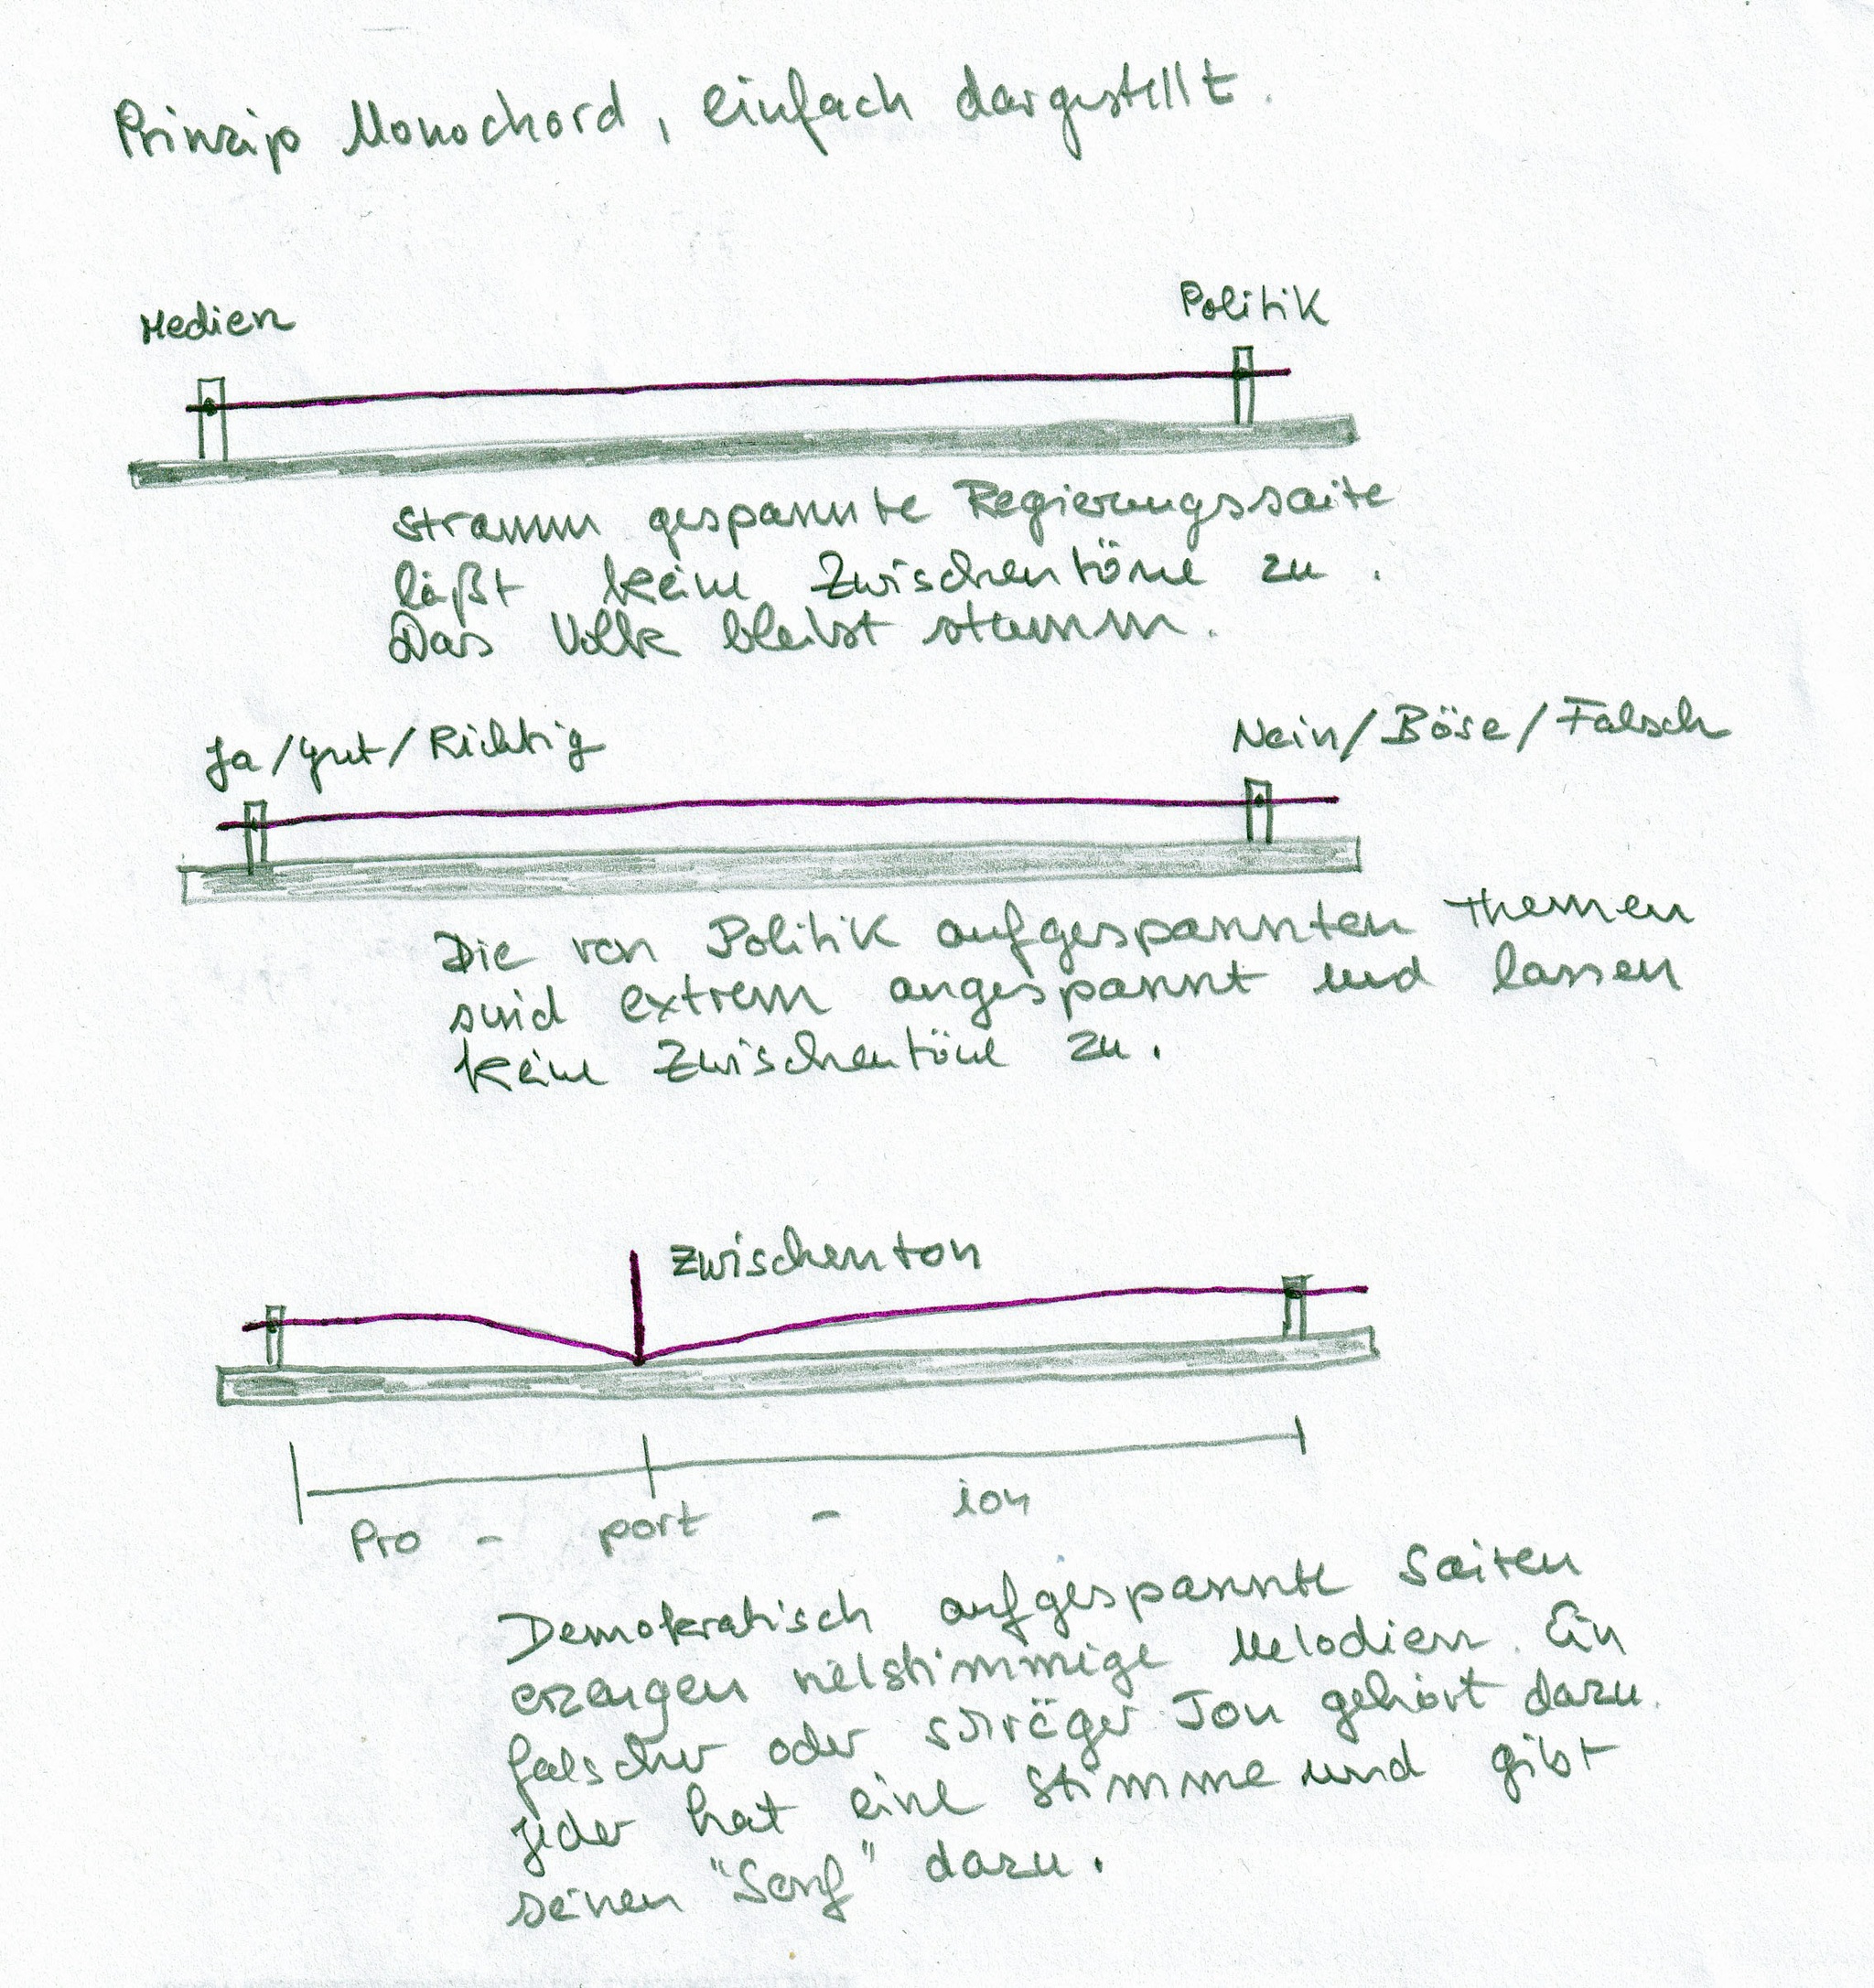 Prinzip Monochord, einfach dargestellt.
Medien
Politik
stramm gespannte Regierungssaite
läßt keine Zwischentöne zu.
Das Volk bleibt stumm.
Ja/gut/Richtig
Nein/Böse/Falsch
Die von Politik aufgespannten Themen
sind extrem angespannt und lassen
keine Zwischentöne zu.
Zwischenton
Pro - port - ion
Demokratisch aufgespannte Saiten
erzeugen vielstimmige Melodien. Ein
falscher oder schräger Ton gehört dazu.
jeder hat eine Stimme und gibt
seinen "Senf" dazu.